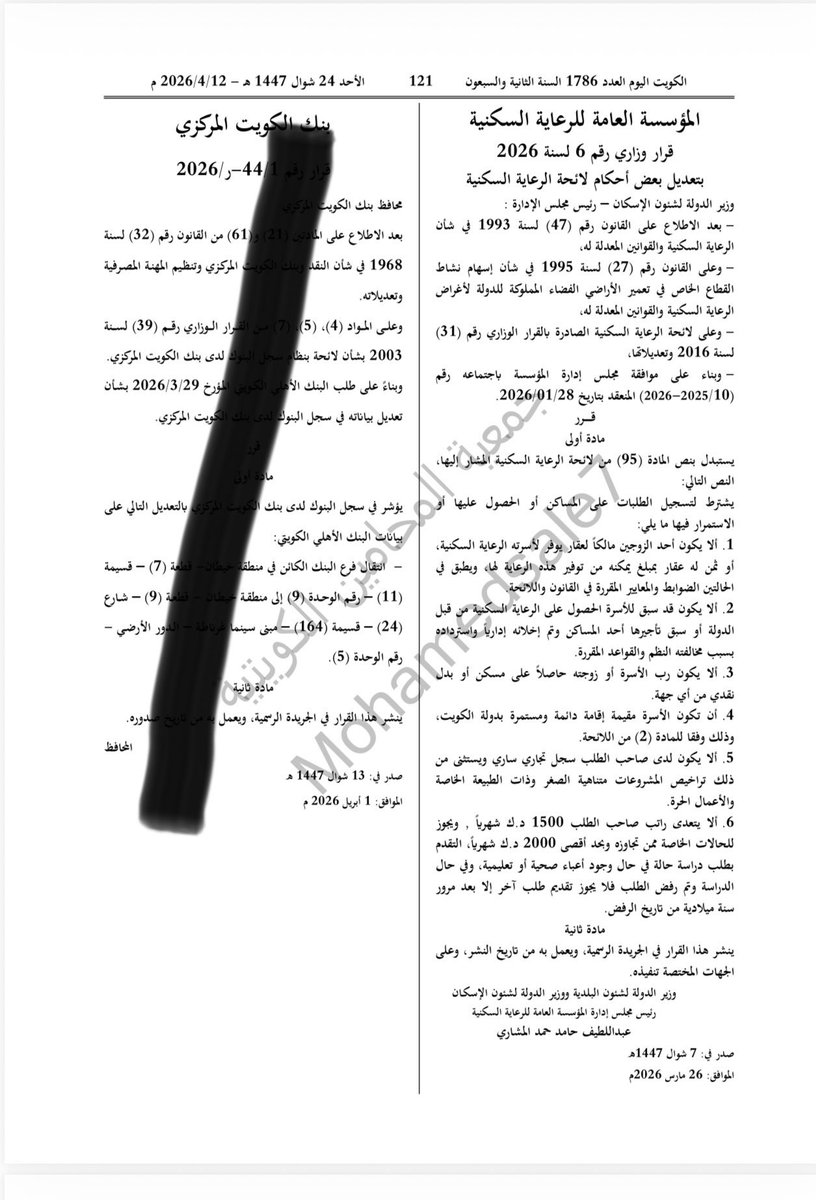 الكويت اليوم العدد 1786 السنة الثانية والسبعون
121
الأحد 24 شوال 1447 هـ – 2026/4/12 م
المؤسسة العامة للرعاية السكنية
قرار وزاري رقم 6 لسنة 2026
بتعديل بعض أحكام لائحة الرعاية السكنية
وزير الدولة لشئون الإسكان – رئيس مجلس الإدارة :
– بعد الاطلاع على القانون رقم (47) لسنة 1993 في شأن
الرعاية السكنية والقوانين المعدلة له،
– وعلى القانون رقم (27) لسنة 1995 في شأن إسهام نشاط
القطاع الخاص في تعمير الأراضي الفضاء المملوكة للدولة لأغراض
الرعاية السكنية والقوانين المعدلة له،
– وعلى لائحة الرعاية السكنية الصادرة بالقرار الوزاري رقم (31)
لسنة 2016 وتعديلاتها،
– وبناء على موافقة مجلس إدارة المؤسسة باجتماعه رقم
(2026–2025/10) المنعقد بتاريخ 2026/01/28.
قــرر
مادة أولى
يستبدل بنص المادة (95) من لائحة الرعاية السكنية المشار إليها،
النص التالي:
يشترط لتسجيل الطلبات على المساكن أو الحصول عليها أو
الاستمرار فيها ما يلي:
1. ألا يكون أحد الزوجين مالكاً لعقار يوفر لأسرته الرعاية السكنية،
أو ثمن له عقار بمبلغ يمكنه من توفير هذه الرعاية لها، ويطبق في
الحالتين الضوابط والمعايير المقررة في القانون واللائحة.
2. ألا يكون قد سبق للأسرة الحصول على الرعاية السكنية من قبل
الدولة أو سبق تأجيرها أحد المساكن وتم إخلائه إدارياً واسترداده
بسبب مخالفته النظم والقواعد المقررة.
3. ألا يكون رب الأسرة أو زوجته حاصلاً على مسكن أو بدل
نقدي من أي جهة.
4. أن تكون الأسرة مقيمة إقامة دائمة ومستمرة بدولة الكويت،
وذلك وفقا للمادة (2) من اللائحة.
5. ألا يكون لدى صاحب الطلب سجل تجاري ساري ويستثنى من
ذلك تراخيص المشروعات متناهية الصغر وذات الطبيعة الخاصة
والأعمال الحرة.
6. ألا يتعدى راتب صاحب الطلب 1500 د.ك شهرياً , ويجوز
للحالات الخاصة ممن تجاوزه وبحد أقصى 2000 د.ك شهرياً، التقدم
بطلب دراسة حالة في حال وجود أعباء صحية أو تعليمية، وفي حال
الدراسة وتم رفض الطلب فلا يجوز تقديم طلب آخر إلا بعد مرور
سنة ميلادية من تاريخ الرفض.
مادة ثانية
ينشر هذا القرار في الجريدة الرسمية، ويعمل به من تاريخ النشر، وعلى
الجهات المختصة تنفيذه.
وزير الدولة لشئون البلدية ووزير الدولة لشئون الإسكان
رئيس مجلس إدارة المؤسسة العامة للرعاية السكنية
عبداللطيف حامد حمد المشاري
صدر في: 7 شوال 1447هـ
الموافق: 26 مارس 2026م
بنك الكويت المركزي
قرار رقم 44/1–ر/2026
محافظ بنك الكويت المركزي
بعد الاطلاع على المادتين (21) و(61) من القانون رقم (32) لسنة
1968 في شأن النقد وبنك الكويت المركزي وتنظيم المهنة المصرفية
وتعديلاته.
وعلى المواد (4)، (5)، (7) من القرار الوزاري رقم (39) لسنة
2003 بشأن لائحة بنظام سجل البنوك لدى بنك الكويت المركزي.
وبناءً على طلب البنك الأهلي الكويتي المؤرخ 2026/3/29 بشأن
تعديل بياناته في سجل البنوك لدى بنك الكويت المركزي.
قرر
مادة أولى
يؤشر في سجل البنوك لدى بنك الكويت المركزي بالتعديل التالي على
بيانات البنك الأهلي الكويتي:
– انتقال فرع البنك الكائن في منطقة خيطان– قطعة (7) – قسيمة
(11) – رقم الوحدة (9) إلى منطقة خيطان – قطعة (9) – شارع
(24) – قسيمة (164) – مبنى سينما غرناطة – الدور الأرضي –
رقم الوحدة (5).
مادة ثانية
ينشر هذا القرار في الجريدة الرسمية، ويعمل به من تاريخ صدوره.
المحافظ
صدر في: 13 شوال 1447 هـ
الموافق: 1 أبريل 2026 م
جمعية المحامين الكويتية
Mohamedsale7